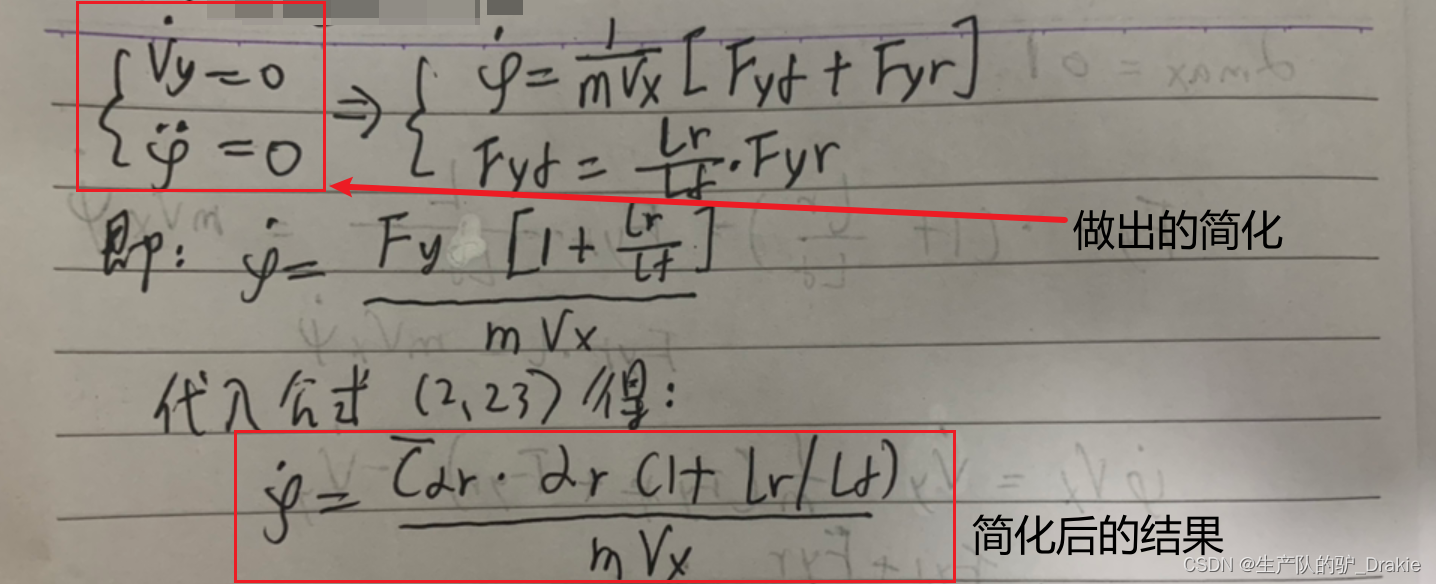 V̇y = 0
φ̈ = 0
⇒ φ̇ = 1/(m Vx) [Fyf + Fyr]
Fyf = Lr/Lf · Fyr
做出的简化
即: φ̇ = Fy [1 + Lr/Lf] / (m Vx)
代入公式 (2,23) 得:
φ̇ = Cαr · αr (1 + Lr/Lf) / (m Vx)
简化后的结果
CSDN @生产队的驴_Drakie